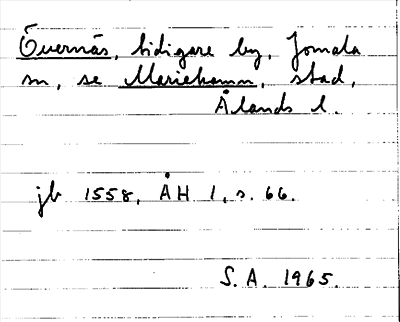 Övernäs, tidigare by, Jomala
sn, se Mariehamn, stad,
Ålands l.
jb 1558, ÅH 1, s. 66.
S.A. 1965.